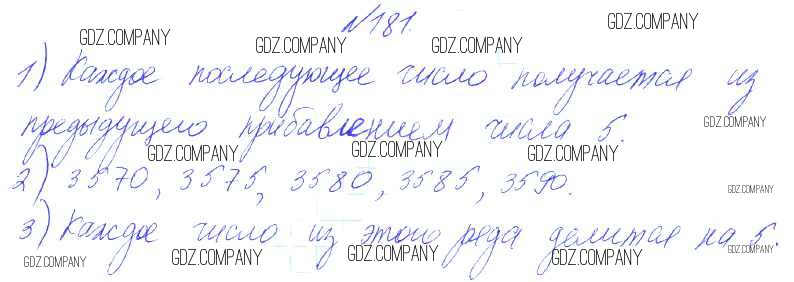 №181.
1) Каждое последующее число получается из
предыдущего прибавлением числа 5.
2) 3570, 3575, 3580, 3585, 3590.
3) Каждое число из этого ряда делится на 5.
GDZ.COMPANY
GDZ.COMPANY
GDZ.COMPANY
GDZ.COMPANY
GDZ.COMPANY
GDZ.COMPANY
GDZ.COMPANY
GDZ.COMPANY
GDZ.COMPANY
GDZ.COMPANY
GDZ.COMPANY
GDZ.COMPANY
GDZ.COMPANY
GDZ.COMPANY